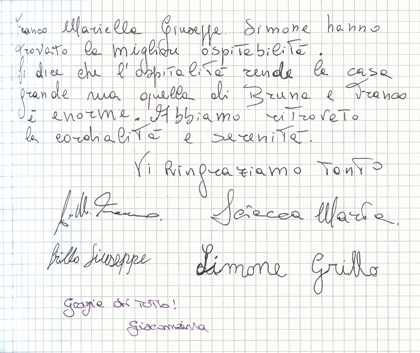 Franco Mariella Giuseppe Simone hanno
trovato la migliore ospitabilità.
Si dice che l'ospitalità rende la casa
grande ma quella di Bruna e Franco
è enorme. Abbiamo ritrovato
la cordialità e serenità.
Vi Ringraziamo tanto
Sciacca Maria.
Grillo Giuseppe
Simone Grillo
Grazie di tutto!